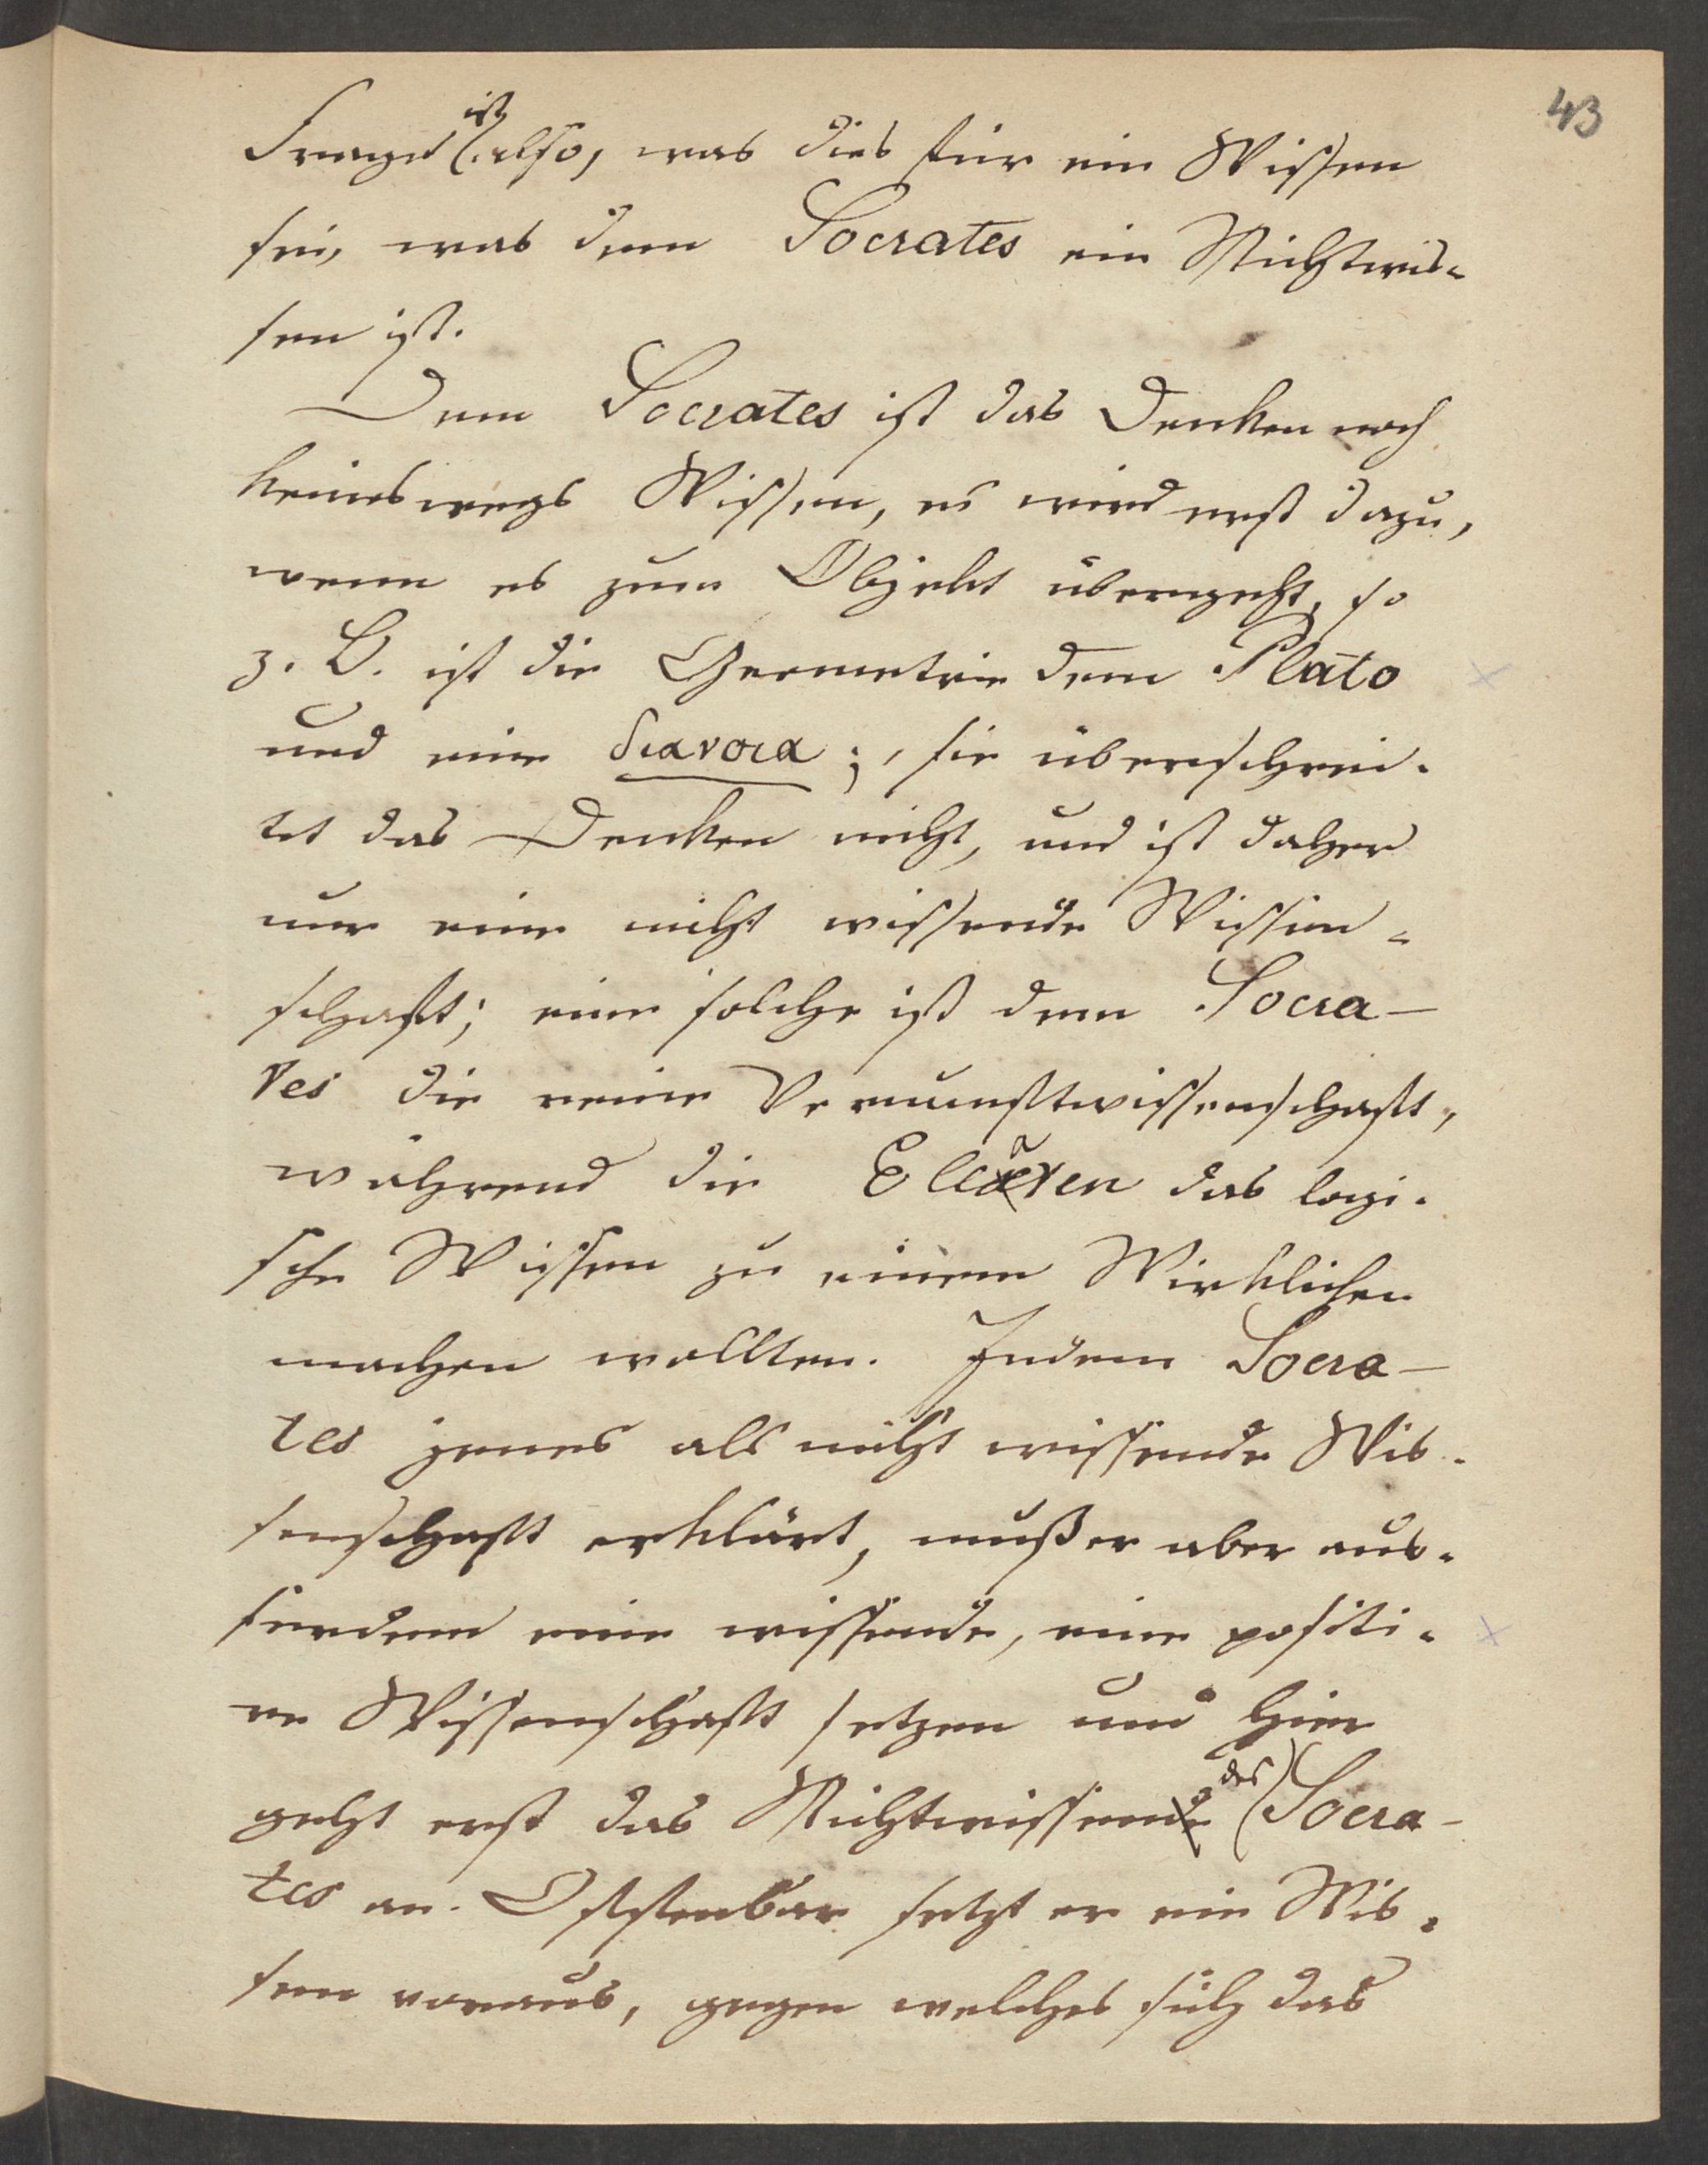 43
Frage ist also, was dies für ein Wissen
sei, was dem Socrates ein Nichtwis-
sen ist.
Dem Socrates ist das Denken noch
keineswegs Wissen, es wird erst dazu,
wenn es zum Objekt übergeht, so
z. B. ist die Geometrie dem Plato
und eine διανοια; sie überschrei-
tet das Denken nicht, und ist daher
nur eine nicht wissende Wissen-
schaft; eine solche ist dem Socra-
tes die reine Vernunftwissenschaft,
während die Eleaten das logi-
sche Wissen zu einem Wirklichen
machen wollten. Indem Socra-
tes jenes als nicht wissende Wis-
senschaft erklärt, muß er aber aus-
serdem eine wissende, eine positi-
ve Wissenschaft setzen und hier
geht erst das Nichtwissen des Socra-
tes an. Offenbar setzt er ein Wis-
sen voraus, gegen welches sich das